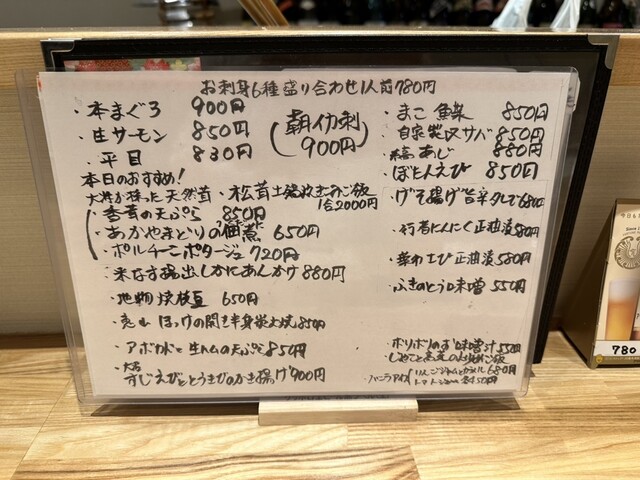 お刺身6種盛り合わせ1人前780円
・本まぐろ 900円
・生サーモン 850円
・平目 830円
(朝イカ刺 900円)
・まこ 850円
自家製〆サバ 850円
・縞あじ 880円
・ぼたんえび 850円
本日のおすすめ!
大将が採った天然茸
・松茸土鍋炊き込みご飯
1合2000円
・香茸の天ぷら 850円
・あかやまどりの佃煮 650円
・ポルチーニポタージュ 720円
・米なす揚出しかにあんかけ 880円
・地物 650円
ほっけの開き半身炭火焼 850円
・アボカドと生ハムの天ぷら 850円
・大名
すじえびととうきびのかき揚げ 900円
・げそ揚げ旨辛タレで 680円
・行者にんにく正油漬 580円
・葉わさび正油漬 580円
・ふきのとう味噌 550円
・ボリボリのお味噌汁 550円
680円
・バニラアイス
りんごジャムとカラメル
トマトジャム 各450円
780